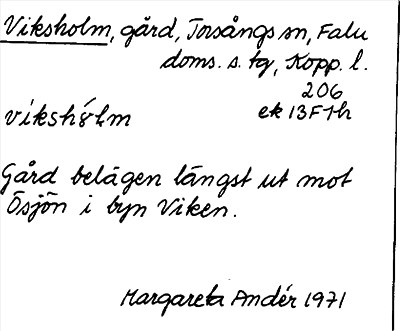 Viksholm, gård, Torsångs sn, Falu
doms. s. tg, Kopp. l.
206
ek 13F1h
Gård belägen längst ut mot
Ösjön i byn Viken.
Margareta Andér 1971